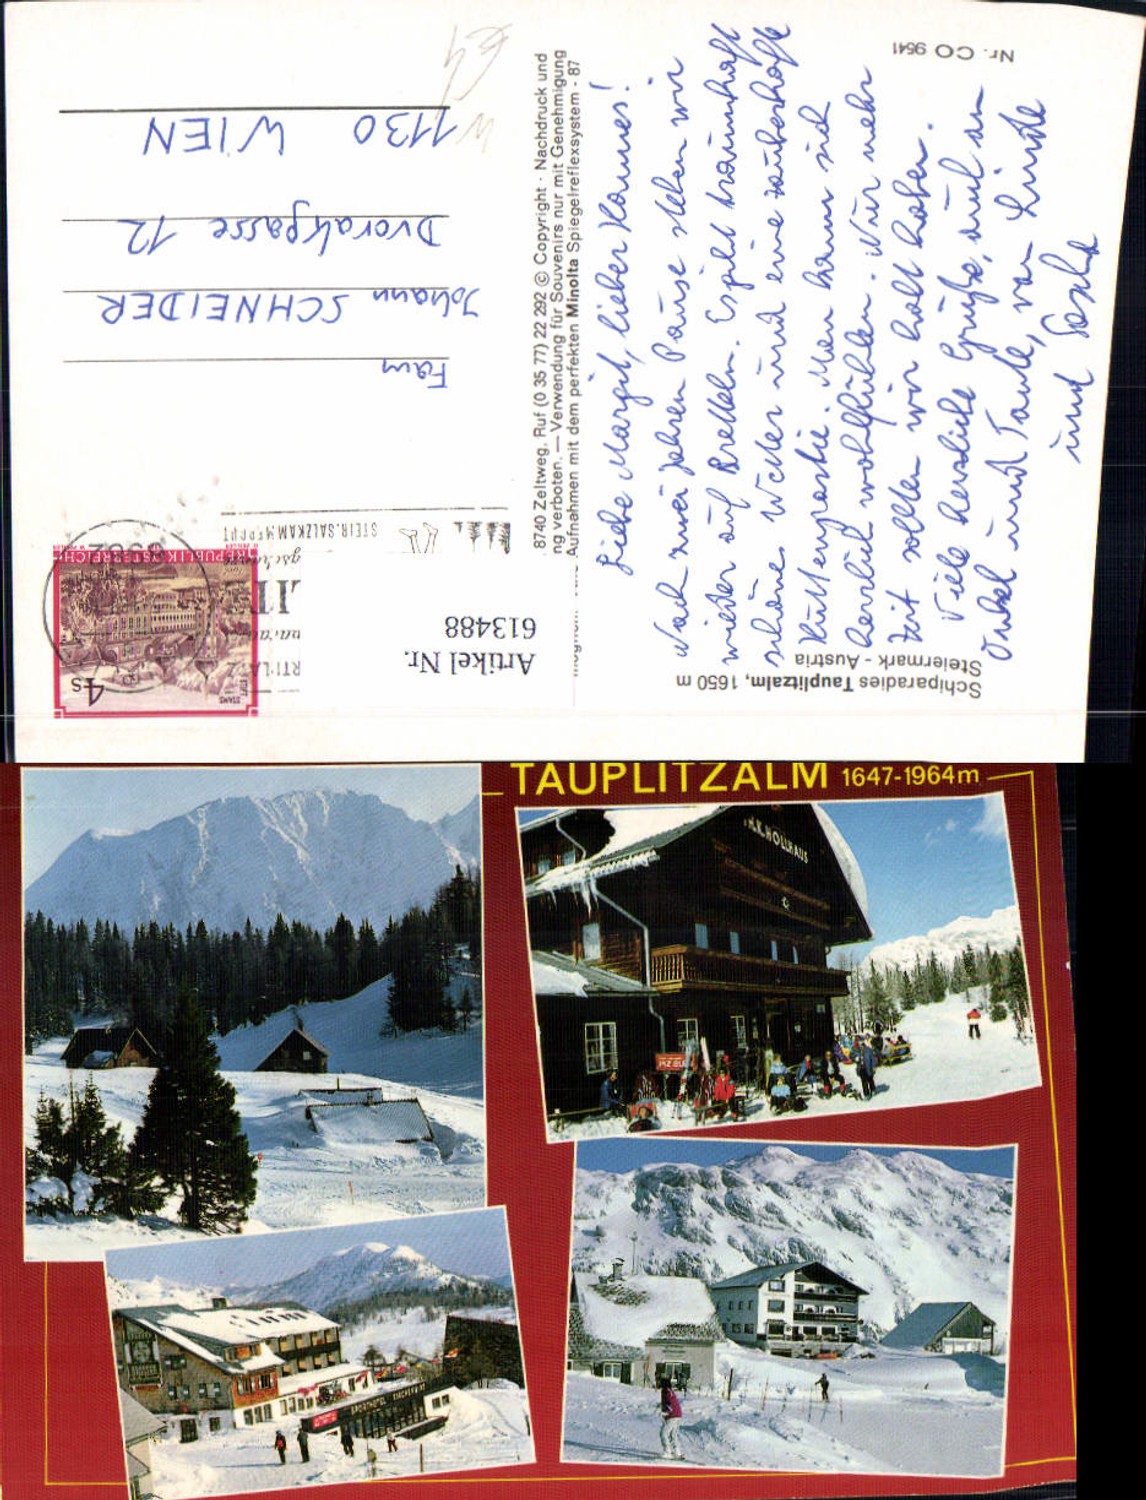 Nr. CO 9541
Schiparadies Tauplitzalm, 1650 m
Steiermark - Austria
Liebe Margit, lieber Hannes!
Nach zwei Jahren Pause stehen wir
wieder auf Brettln. Es gibt traumhaft
schönes Wetter und eine zauberhafte
Hüttenpartie. Man kann sich
herrlich wohlfühlen. Nur mehr
Zeit sollten wir halt haben.
Viele herzliche Grüße, auch an
Onkel und Tante, von Linde
und
8740 Zeltweg, Ruf (0 35 77) 22 292 © Copyright · Nachdruck und
ng verboten. — Verwendung für Souvenirs nur mit Genehmigung
Aufnahmen mit dem perfekten Minolta Spiegelreflexsystem - 87
Artikel Nr.
613488
REPUBLIK ÖSTERREICH
STIFT
STAMS
4s
STEIR.SALZKAMMERGUT
Fam
Johann SCHNEIDER
Dvorakgasse 12
1130 WIEN
TAUPLITZALM 1647-1964m
HOLLHAUS
SPORTHOTEL